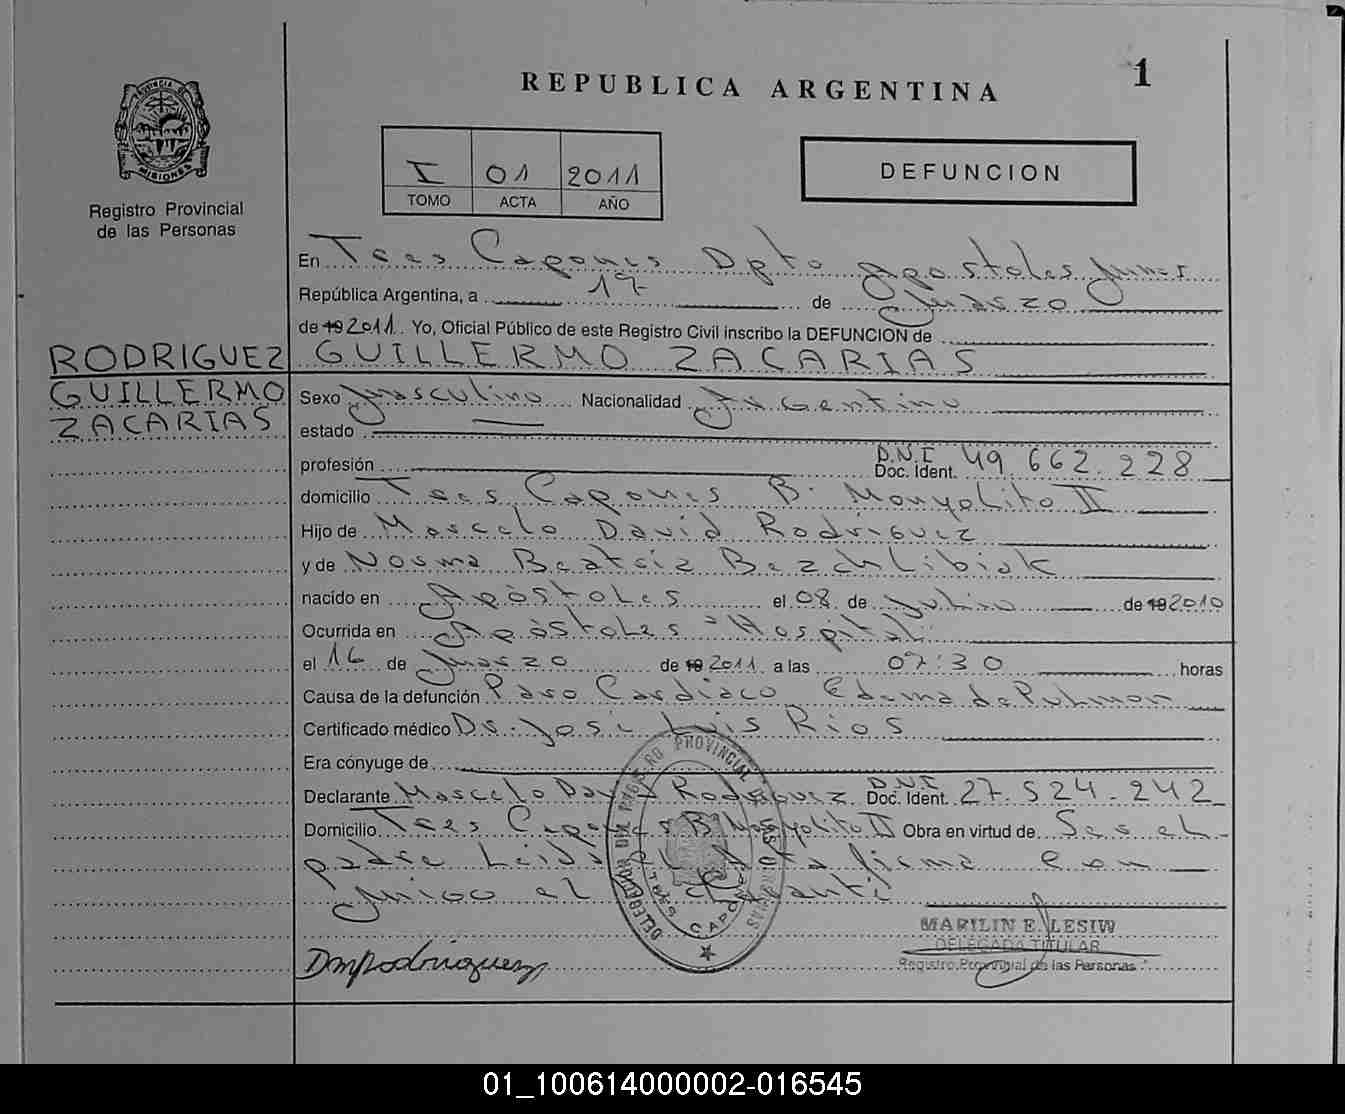 1
REPUBLICA ARGENTINA
PROVINCIA DE
MISIONES
Registro Provincial
de las Personas
I 01 2011
TOMO ACTA AÑO
DEFUNCION
En Tres Capones Dpto Apostoles
República Argentina, a 17 de Marzo
de 19 2011. Yo, Oficial Público de este Registro Civil inscribo la DEFUNCION de
RODRIGUEZ GUILLERMO ZACARIAS
GUILLERMO
ZACARIAS
Sexo Masculino Nacionalidad Argentino
estado
profesión D.N.I Doc. Ident. 49.662.228
domicilio Tres Capones B. Monyolito II
Hijo de Marcelo David Rodriguez
y de Norma Beatriz Bezchlibiak
nacido en Apóstoles el 08 de Julio de 19 2010
Ocurrida en Apóstoles - Hospital
el 16 de Marzo de 19 2011 a las 07:30 horas
Causa de la defunción Paro Cardiaco Edema de Pulmon
Certificado médico Dr. José Luis Rios
Era cónyuge de
Declarante Marcelo David Rodriguez D.N.I Doc. Ident. 27.524.242
Domicilio Tres Capones B. Monyolito II Obra en virtud de Ser el
padre Leida el acta firma con
migo el
DELEGACION DEL REGISTRO PROVINCIAL DE LAS PERSONAS
TRES CAPONES
MARILIN E. LESIW
DELEGADA TITULAR
Registro Provincial de las Personas
DMRodriguez
01_100614000002-016545